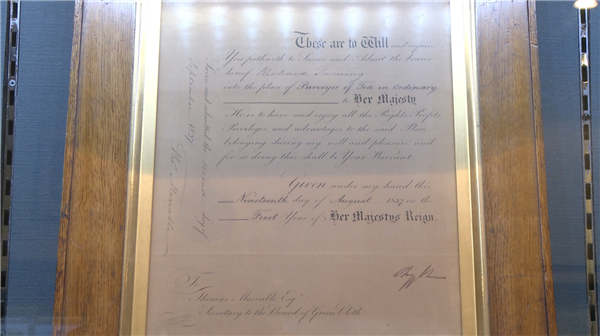 These are to Will and require
You forthwith to Swear and Admit the
Twining
into the place of Purveyor of Tea in Ordinary
to Her Majesty
Him to have and enjoy all the Rights Profits
Privileges and advantages to the said Place
belonging during my will and pleasure and
for so doing this shall be Your Warrant
Given under my hand this
Nineteenth day of August 1837 in the
First Year of Her Majestys Reign.
To
Thomas Esq
Secretary to the Board of Green Cloth
Sworn and admitted the second day of
September 1837